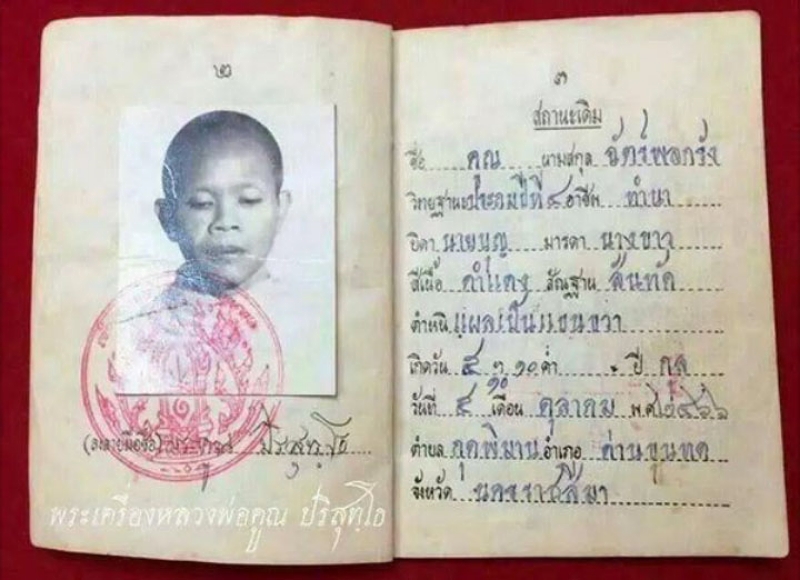 ๒
(ลงลายมือชื่อ) พระคูณ ปริสุทฺโธ
พระเครื่องหลวงพ่อคูณ ปริสุทฺโธ
๓
สถานะเดิม
ชื่อ คุณ นามสกุล ฉัตร์พลกรัง
วิทยฐานะ ประถมปีที่ ๔ อาชีพ ทำนา
บิดา นายบุญ มารดา นางขาว
สีเนื้อ ดำแดง สัณฐาน สันทัด
ตำหนิ แผลเป็นแขนขวา
เกิดวัน ๕ ๑๐ ค่ำ ปี กุน
วันที่ ๔ เดือน ตุลาคม พ.ศ. ๒๔๖๖
ตำบล กุดพิมาน อำเภอ ด่านขุนทด
จังหวัด นครราชสีมา